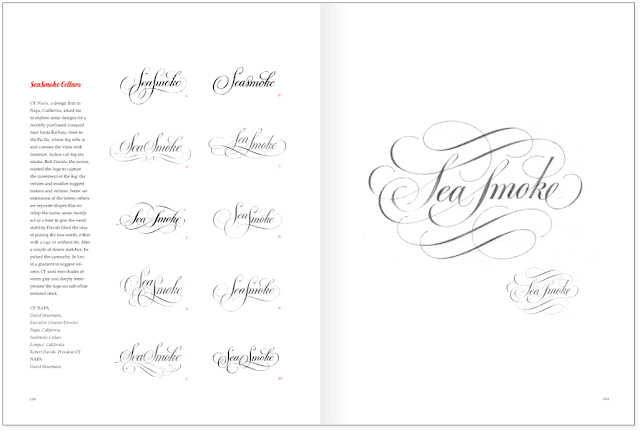 Sea Smoke Cellars
CF Napa, a design firm in
Napa, California, asked me
to explore some designs for a
recently purchased vineyard
near Santa Barbara, close to
the Pacific, where fog rolls in
and caresses the vines with
moisture. Sailors call fog sea
smoke. Bob Davids, the owner,
wanted the logo to capture
the movement of the fog: the
volutes and swashes suggest
motion and volume. Some are
extensions of the letters; others
are separate shapes that
the name; some merely
act as a base to give the word
stability. Davids liked the idea
of joining the two words, either
with a cap, or without tie. After
a couple of dozen sketches, he
picked the cartouche. In lieu
of a gradient to suggest
CF used two shades of
warm gray and deeply letter-
pressed the logo on soft white
textured stock.
CF NAPA
David
Executive Creative Director
Napa, California
SeaSmoke Cellars
Lompoc, California
Robert Davids, President/CF
NAPA
David
Sea Smoke
Seasmoke
Sea Smoke
Sea Smoke
Sea Smoke
Sea Smoke
Sea Smoke
Sea Smoke
Sea Smoke
Sea Smoke
Sea Smoke
Sea Smoke